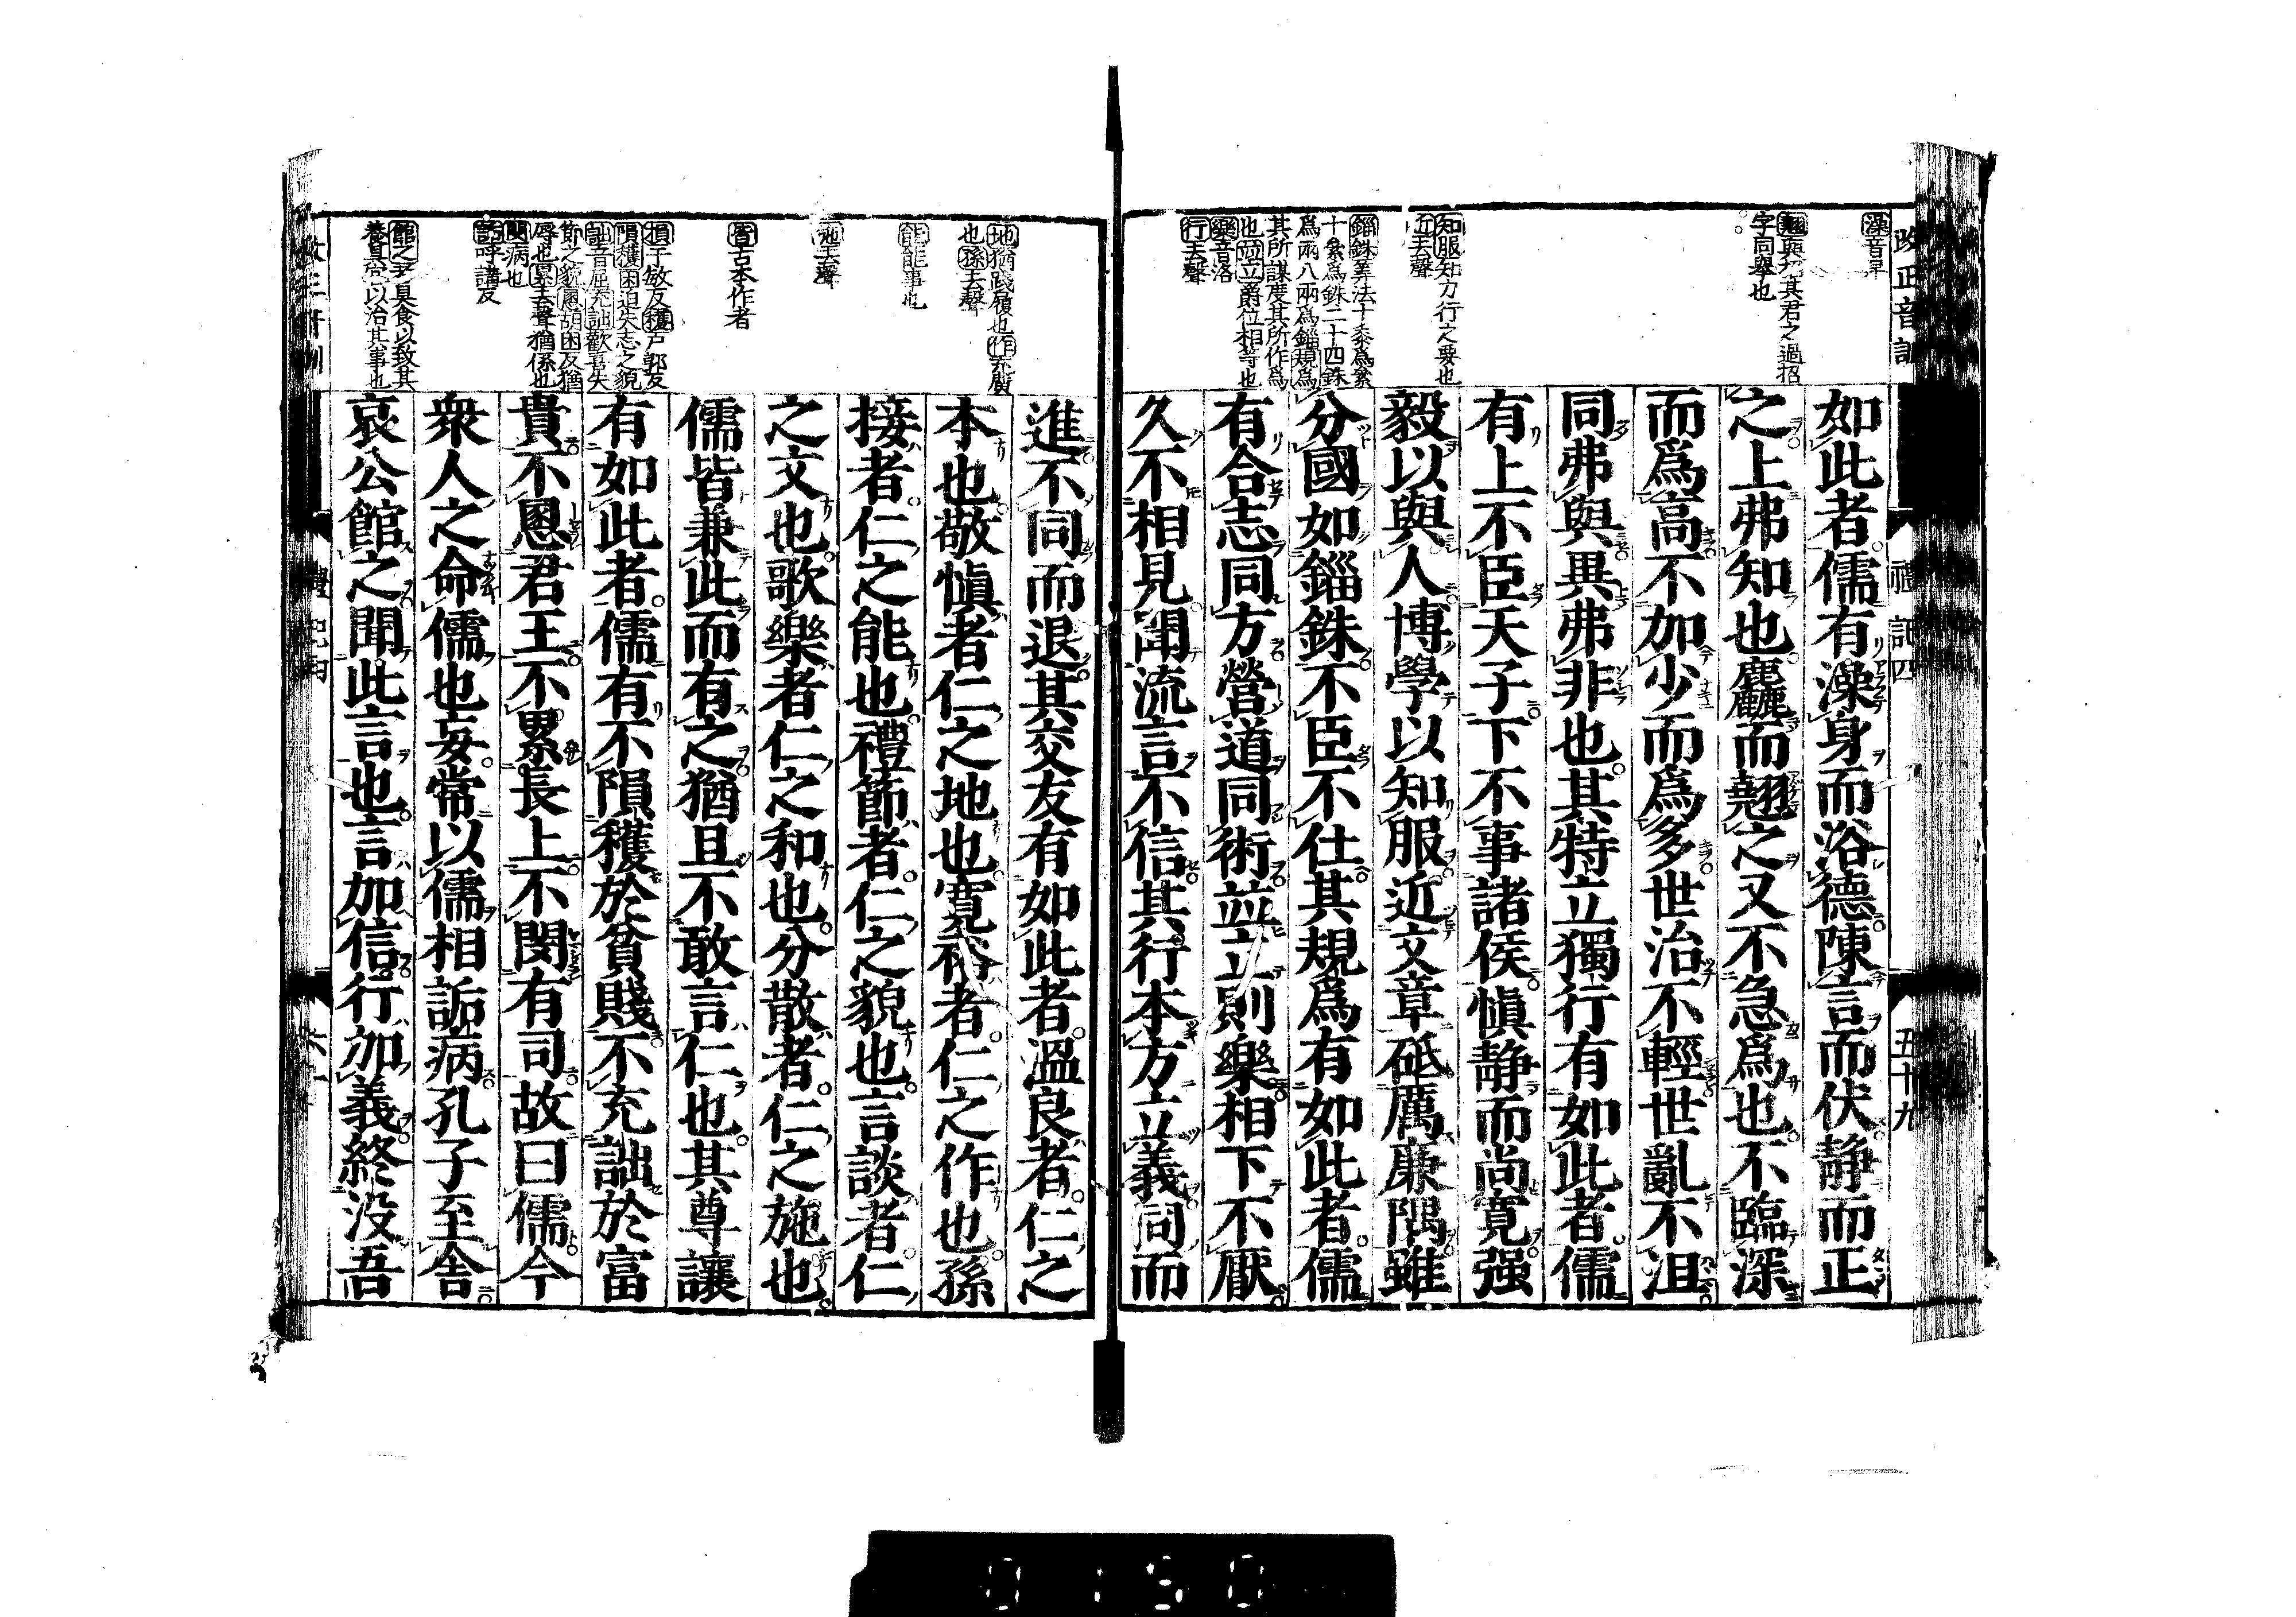 改正音訓
禮記四
五十九
澡音早
翹與招其君之過招
字同舉也
知服知力行之要也
近去聲
錙銖筭法十黍爲絫
十絫爲銖二十四銖
爲兩八兩爲錙規爲
其所謀度其所作爲
也並立爵位相等也
樂音洛
行去聲
如此者儒有澡身而浴德陳言而伏靜而正
之上弗知也麤而翹之又不急爲也不臨深
而爲高不加少而爲多世治不輕世亂不沮
同弗與異弗非也其特立獨行有如此者儒
有上不臣天子下不事諸侯愼静而尚寬强
毅以與人博學以知服近文章砥厲廉隅雖
分國如錙銖不臣不仕其規爲有如此者儒
有合志同方營道同術並立則樂相下不厭
久不相見聞流言不信其行本方立義同而
地猶踐履也作
也孫去聲
能能事也
施去聲
皆古本作者
隕于敏反穫戶郭反
隕穫困迫失志之貌
詘音屈充詘歡喜失
節之貌慁胡困反猶
辱也累去聲猶係也
閔病也
詬呼講反
館之具食以致其
養具官以治其事也
進不同而退其交友有如此者溫良者仁之
本也敬愼者仁之地也寛裕者仁之作也孫
接者仁之能也禮節者仁之貌也言談者仁
之文也歌樂者仁之和也分散者仁之施也
儒皆兼此而有之猶且不敢言仁也其尊讓
有如此者儒有不隕穫於貧賤不充詘於富
貴不慁君王不累長上不閔有司故曰儒今
衆人之命儒也妄常以儒相詬病孔子至舍
哀公館之聞此言也言加信行加義終没吾